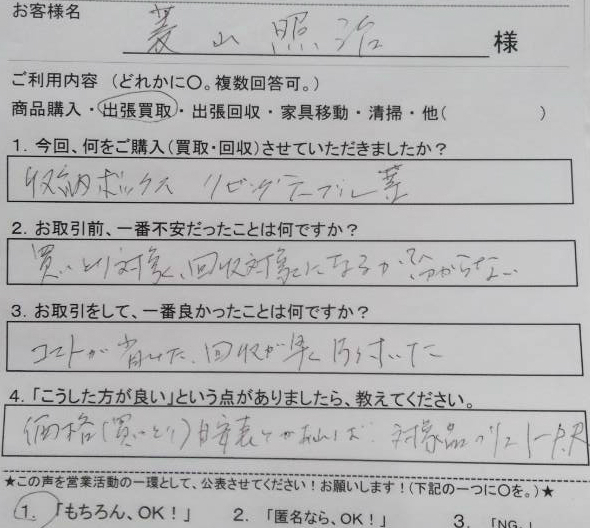 お客様名
菱山 照治 様
ご利用内容 (どれかに〇。複数回答可。)
商品購入・出張買取・出張回収・家具移動・清掃・他( )
1. 今回、何をご購入(買取・回収)させていただきましたか?
収納ボックス リビングテーブル 等
2. お取引前、一番不安だったことは何ですか?
買いとり対象、回収対象になるか分からない
3. お取引をして、一番良かったことは何ですか?
コストが 回収が早く片付いた
4.「こうした方が良い」という点がありましたら、教えてください。
価格(買いとり)目安表とかあれば 対象品のリスト P.R
★この声を営業活動の一環として、公表させてください!お願いします!(下記の一つに〇を。)★
1.「もちろん、OK!」 2.「匿名なら、OK!」 3.「NG.」